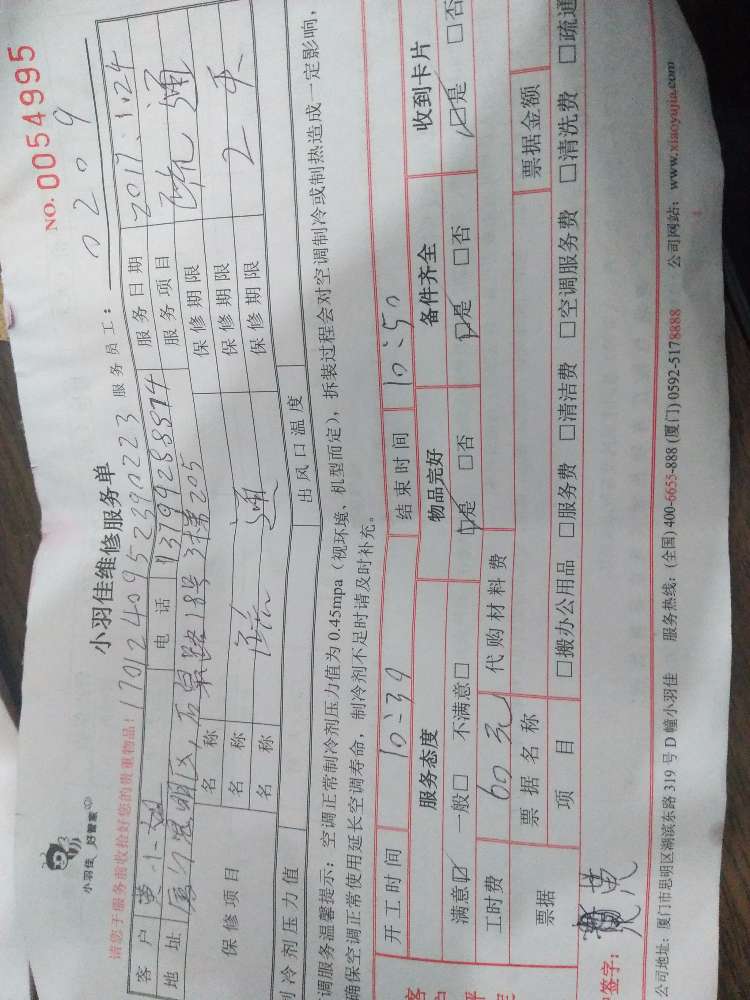 小羽佳 好管家
小羽佳维修服务单
NO. 0054995
请您于服务前收拾好您的贵重物品！170124095239 0223 服务员工：0209
客户 黄小姐 电话 13799288874 服务日期 2017.1.24
地址 厦门思明区,石泉路18号3梯205 服务项目 疏通
保修项目 名称 疏通 保修期限 2天
名称 保修期限
名称 保修期限
制冷剂压力值 出风口温度
调服务温馨提示：空调正常制冷剂压力值为0.45mpa（视环境、机型而定），拆装过程会对空调制冷或制热造成一定影响，
确保空调正常使用延长空调寿命，制冷剂不足时请及时补充。
开工时间 10:39 结束时间 10:50
服务态度 物品完好 备件齐全 收到卡片
满意☑ 一般□ 不满意□ ☑是 □否 ☑是 □否 ☑是 □否
工时费 60元 代购材料费
票据 票据名称 票据金额
项目 □搬办公用品 □服务费 □清洁费 □空调服务费 □清洗费 □疏通
签字： 黄
公司地址：厦门市思明区湖滨东路319号D幢小羽佳 服务热线：(全国)400-6655-888 (厦门)0592-5178888 公司网站：www.xiaoyujia.com